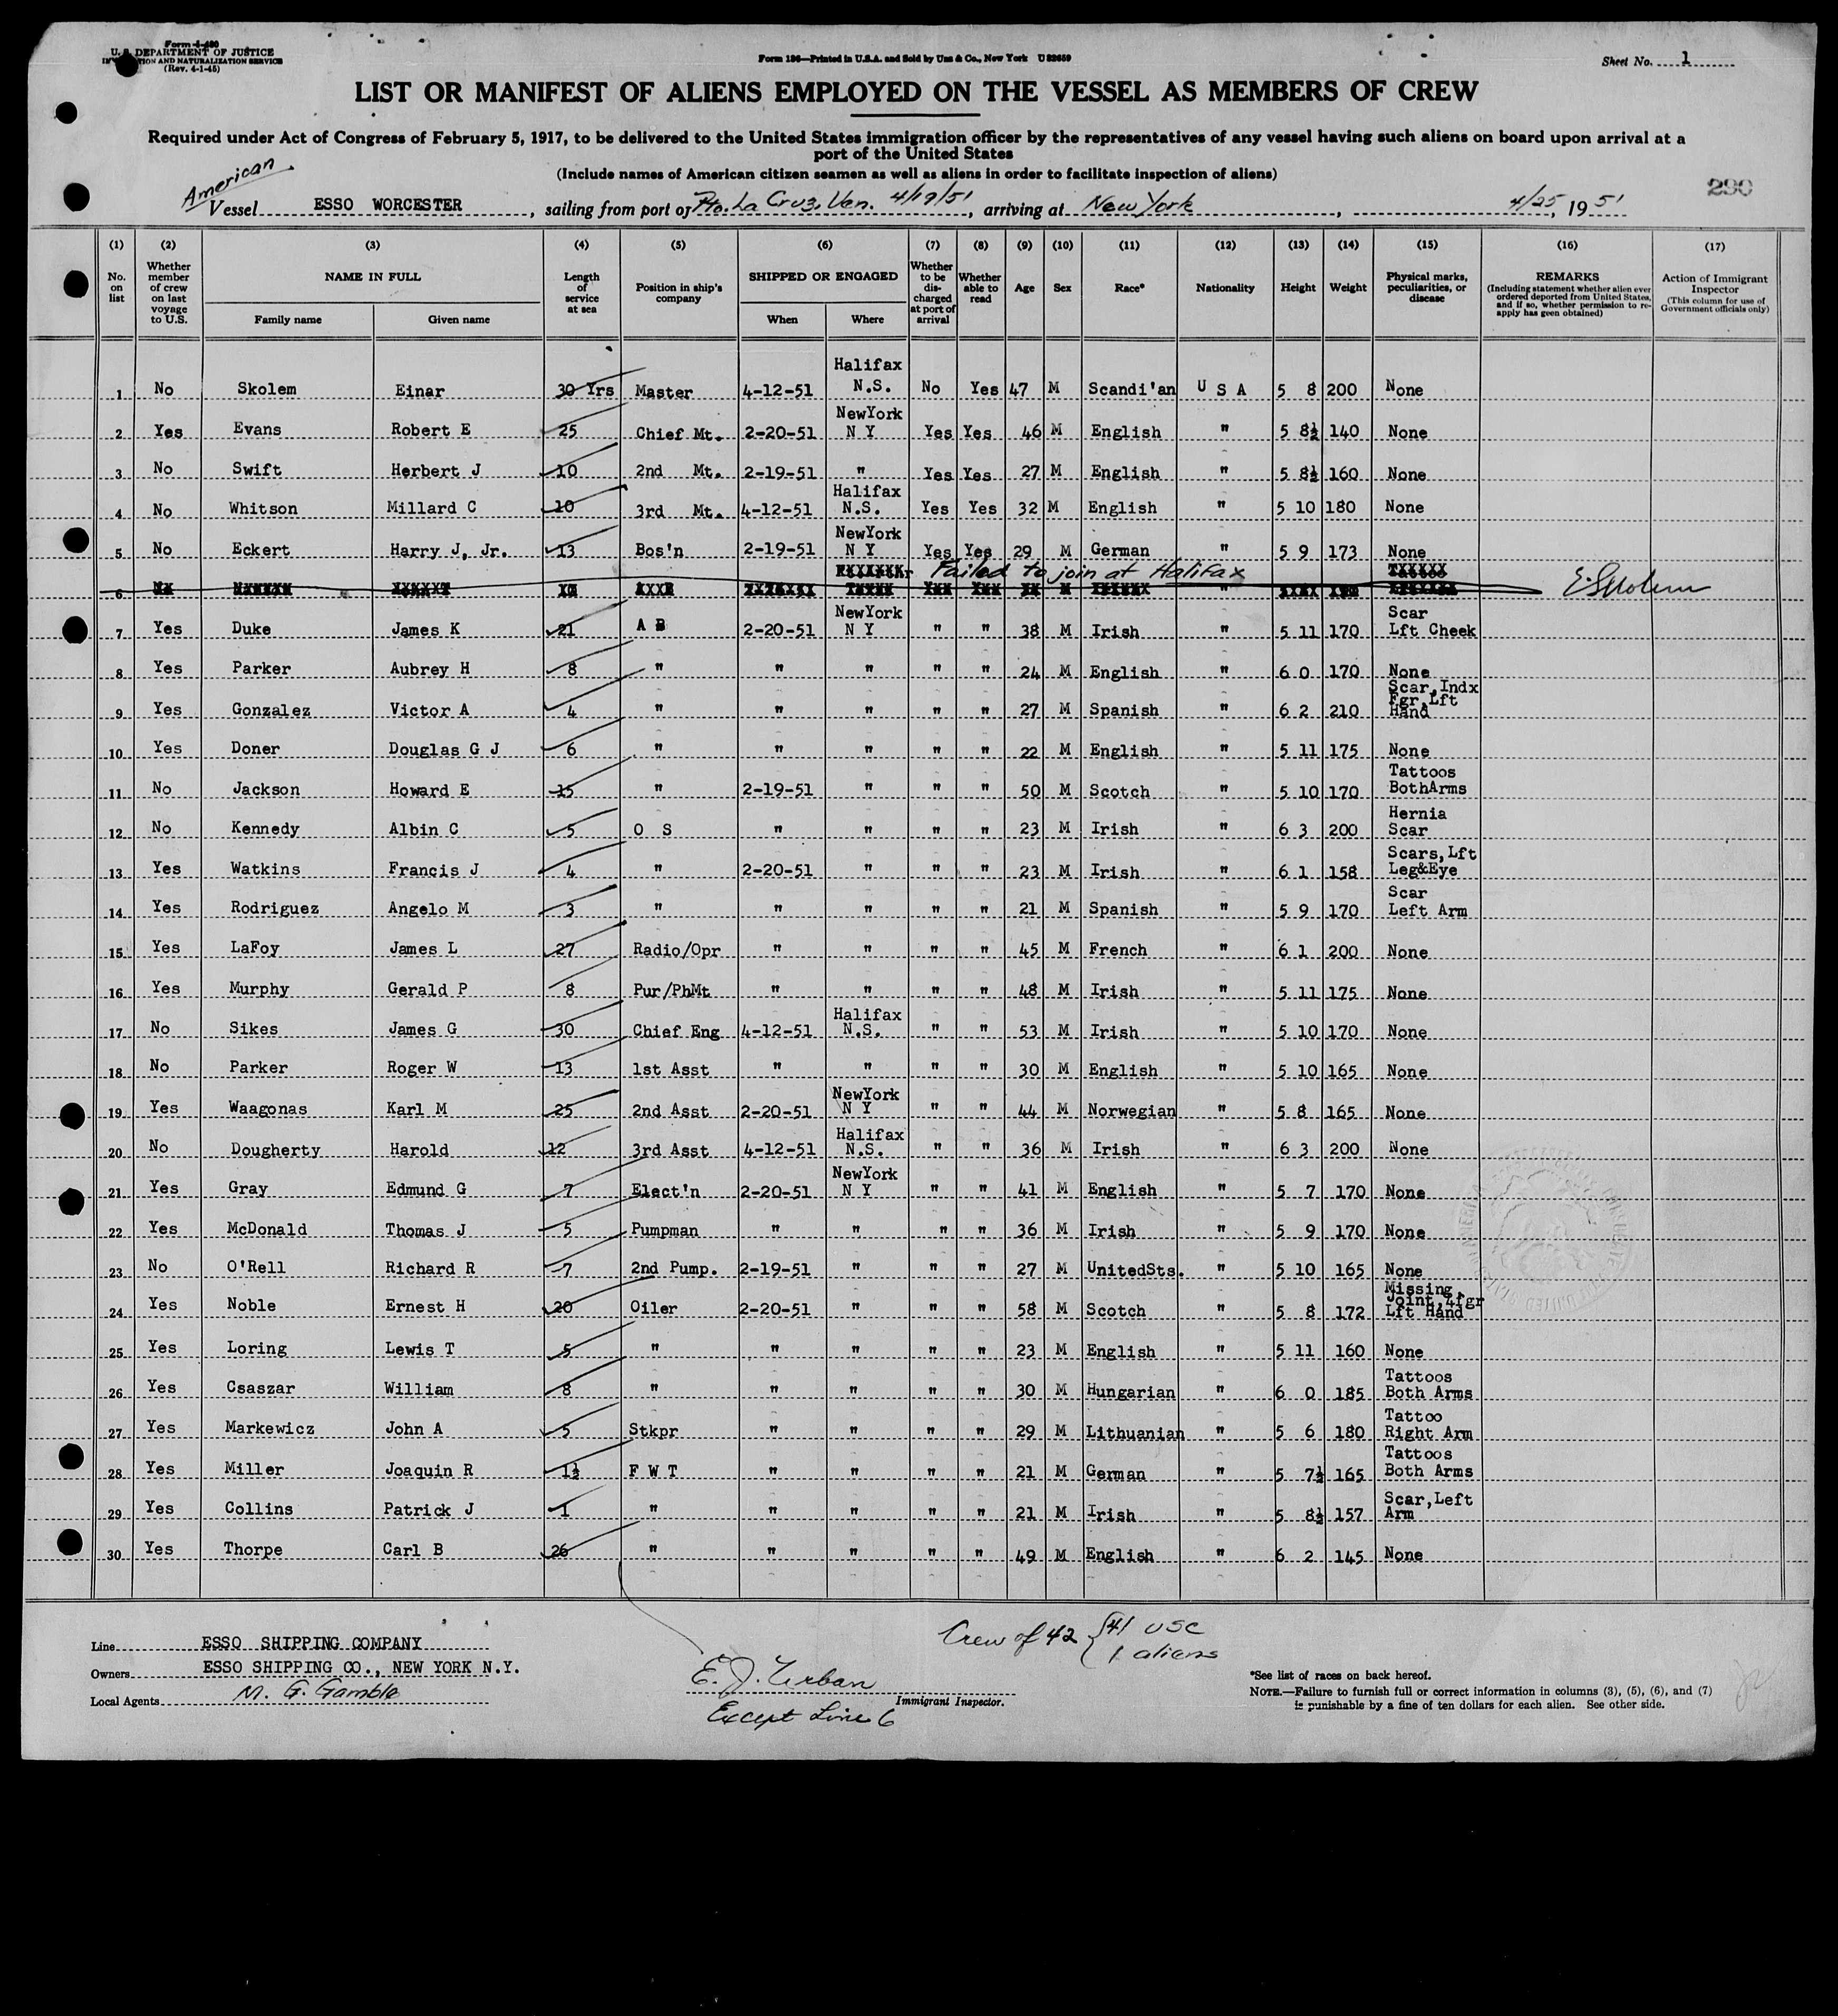 Form I-480
U. S. DEPARTMENT OF JUSTICE
IMMIGRATION AND NATURALIZATION SERVICE
(Rev. 4-1-45)
Form 136—Printed in U.S.A. and Sold by Unz & Co., New York U 82659
Sheet No. 1
LIST OR MANIFEST OF ALIENS EMPLOYED ON THE VESSEL AS MEMBERS OF CREW
Required under Act of Congress of February 5, 1917, to be delivered to the United States immigration officer by the representatives of any vessel having such aliens on board upon arrival at a
port of the United States
(Include names of American citizen seamen as well as aliens in order to facilitate inspection of aliens)
290
American
Vessel ESSO WORCESTER, sailing from port of Pto. La Cruz, Ven. 4/19/51, arriving at New York, 4/25, 1951
(1) (2) (3) (4) (5) (6) (7) (8) (9) (10) (11) (12) (13) (14) (15) (16) (17)
No. on list
Whether member of crew on last voyage to U.S.
NAME IN FULL
Family name
Given name
Length of service at sea
Position in ship's company
SHIPPED OR ENGAGED
When
Where
Whether to be discharged at port of arrival
Whether able to read
Age
Sex
Race*
Nationality
Height
Weight
Physical marks, peculiarities, or disease
REMARKS
(Including statement whether alien ever ordered deported from United States, and if so, whether permission to re-apply has geen obtained)
Action of Immigrant Inspector
(This column for use of Government officials only)
1 No Skolem Einar 30 Yrs Master 4-12-51 Halifax N.S. No Yes 47 M Scandi'an U S A 5 8 200 None
2 Yes Evans Robert E 25 Chief Mt. 2-20-51 NewYork N Y Yes Yes 46 M English " 5 8½ 140 None
3 No Swift Herbert J 10 2nd Mt. 2-19-51 " Yes Yes 27 M English " 5 8½ 160 None
4 No Whitson Millard C 10 3rd Mt. 4-12-51 Halifax N.S. Yes Yes 32 M English " 5 10 180 None
5 No Eckert Harry J, Jr. 13 Bos'n 2-19-51 NewYork N Y Yes Yes 29 M German " 5 9 173 None
6 Failed to join at Halifax " E. Skolem
7 Yes Duke James K 21 A B 2-20-51 NewYork N Y " " 38 M Irish " 5 11 170 Scar Lft Cheek
8 Yes Parker Aubrey H 8 " " " " " 24 M English " 6 0 170 None
9 Yes Gonzalez Victor A 4 " " " " " 27 M Spanish " 6 2 210 Scar, Indx Fgr, Lft Hand
10 Yes Doner Douglas G J 6 " " " " " 22 M English " 5 11 175 None
11 No Jackson Howard E 15 " 2-19-51 " " " 50 M Scotch " 5 10 170 Tattoos BothArms
12 No Kennedy Albin C 5 O S " " " " 23 M Irish " 6 3 200 Hernia Scar
13 Yes Watkins Francis J 4 " 2-20-51 " " " 23 M Irish " 6 1 158 Scars, Lft Leg&Eye
14 Yes Rodriguez Angelo M 3 " " " " " 21 M Spanish " 5 9 170 Scar Left Arm
15 Yes LaFoy James L 27 Radio/Opr " " " " 45 M French " 6 1 200 None
16 Yes Murphy Gerald P 8 Pur/PhMt " " " " 48 M Irish " 5 11 175 None
17 No Sikes James G 30 Chief Eng 4-12-51 Halifax N.S. " " 53 M Irish " 5 10 170 None
18 No Parker Roger W 13 1st Asst " " " " 30 M English " 5 10 165 None
19 Yes Waagonas Karl M 25 2nd Asst 2-20-51 NewYork N Y " " 44 M Norwegian " 5 8 165 None
20 No Dougherty Harold 12 3rd Asst 4-12-51 Halifax N.S. " " 36 M Irish " 6 3 200 None
21 Yes Gray Edmund G 7 Elect'n 2-20-51 NewYork N Y " " 41 M English " 5 7 170 None
22 Yes McDonald Thomas J 5 Pumpman " " " " 36 M Irish " 5 9 170 None
23 No O'Rell Richard R 7 2nd Pump. 2-19-51 " " " 27 M UnitedSts. " 5 10 165 None
24 Yes Noble Ernest H 20 Oiler 2-20-51 " " " 58 M Scotch " 5 8 172 Missing Joint, 4fgr Lft Hand
25 Yes Loring Lewis T 5 " " " " " 23 M English " 5 11 160 None
26 Yes Csaszar William 8 " " " " " 30 M Hungarian " 6 0 185 Tattoos Both Arms
27 Yes Markewicz John A 5 Stkpr " " " " 29 M Lithuanian " 5 6 180 Tattoo Right Arm
28 Yes Miller Joaquin R 1½ F W T " " " " 21 M German " 5 7½ 165 Tattoos Both Arms
29 Yes Collins Patrick J 1 " " " " " 21 M Irish " 5 8½ 157 Scar, Left Arm
30 Yes Thorpe Carl B 26 " " " " " 49 M English " 6 2 145 None
Line ESSO SHIPPING COMPANY
Owners ESSO SHIPPING CO., NEW YORK N.Y.
Local Agents M. G. Gamble
Crew of 42 { 41 USC
1 aliens
E. J. Urban
Immigrant Inspector.
Except Line 6
*See list of races on back hereof.
NOTE.—Failure to furnish full or correct information in columns (3), (5), (6), and (7)
is punishable by a fine of ten dollars for each alien. See other side.